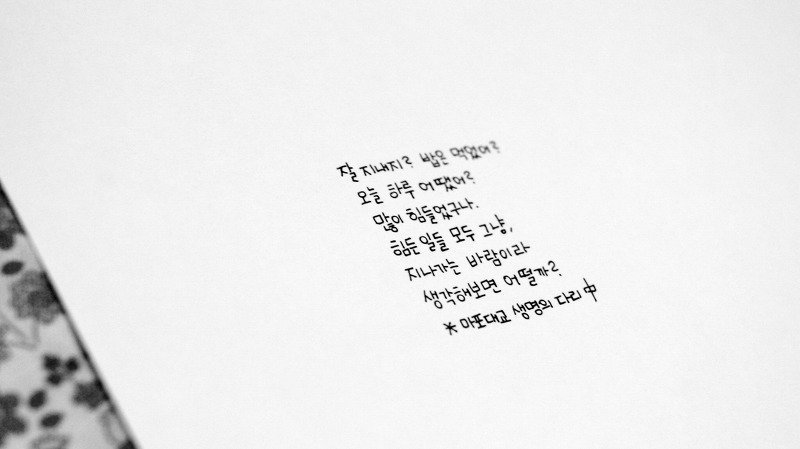 잘 지내지? 밥은 먹었어?
오늘 하루 어땠어?
많이 힘들었구나.
힘든 일들 모두 그냥,
지나가는 바람이라
생각해보면 어떨까?
* 마포대교 생명의 다리 中